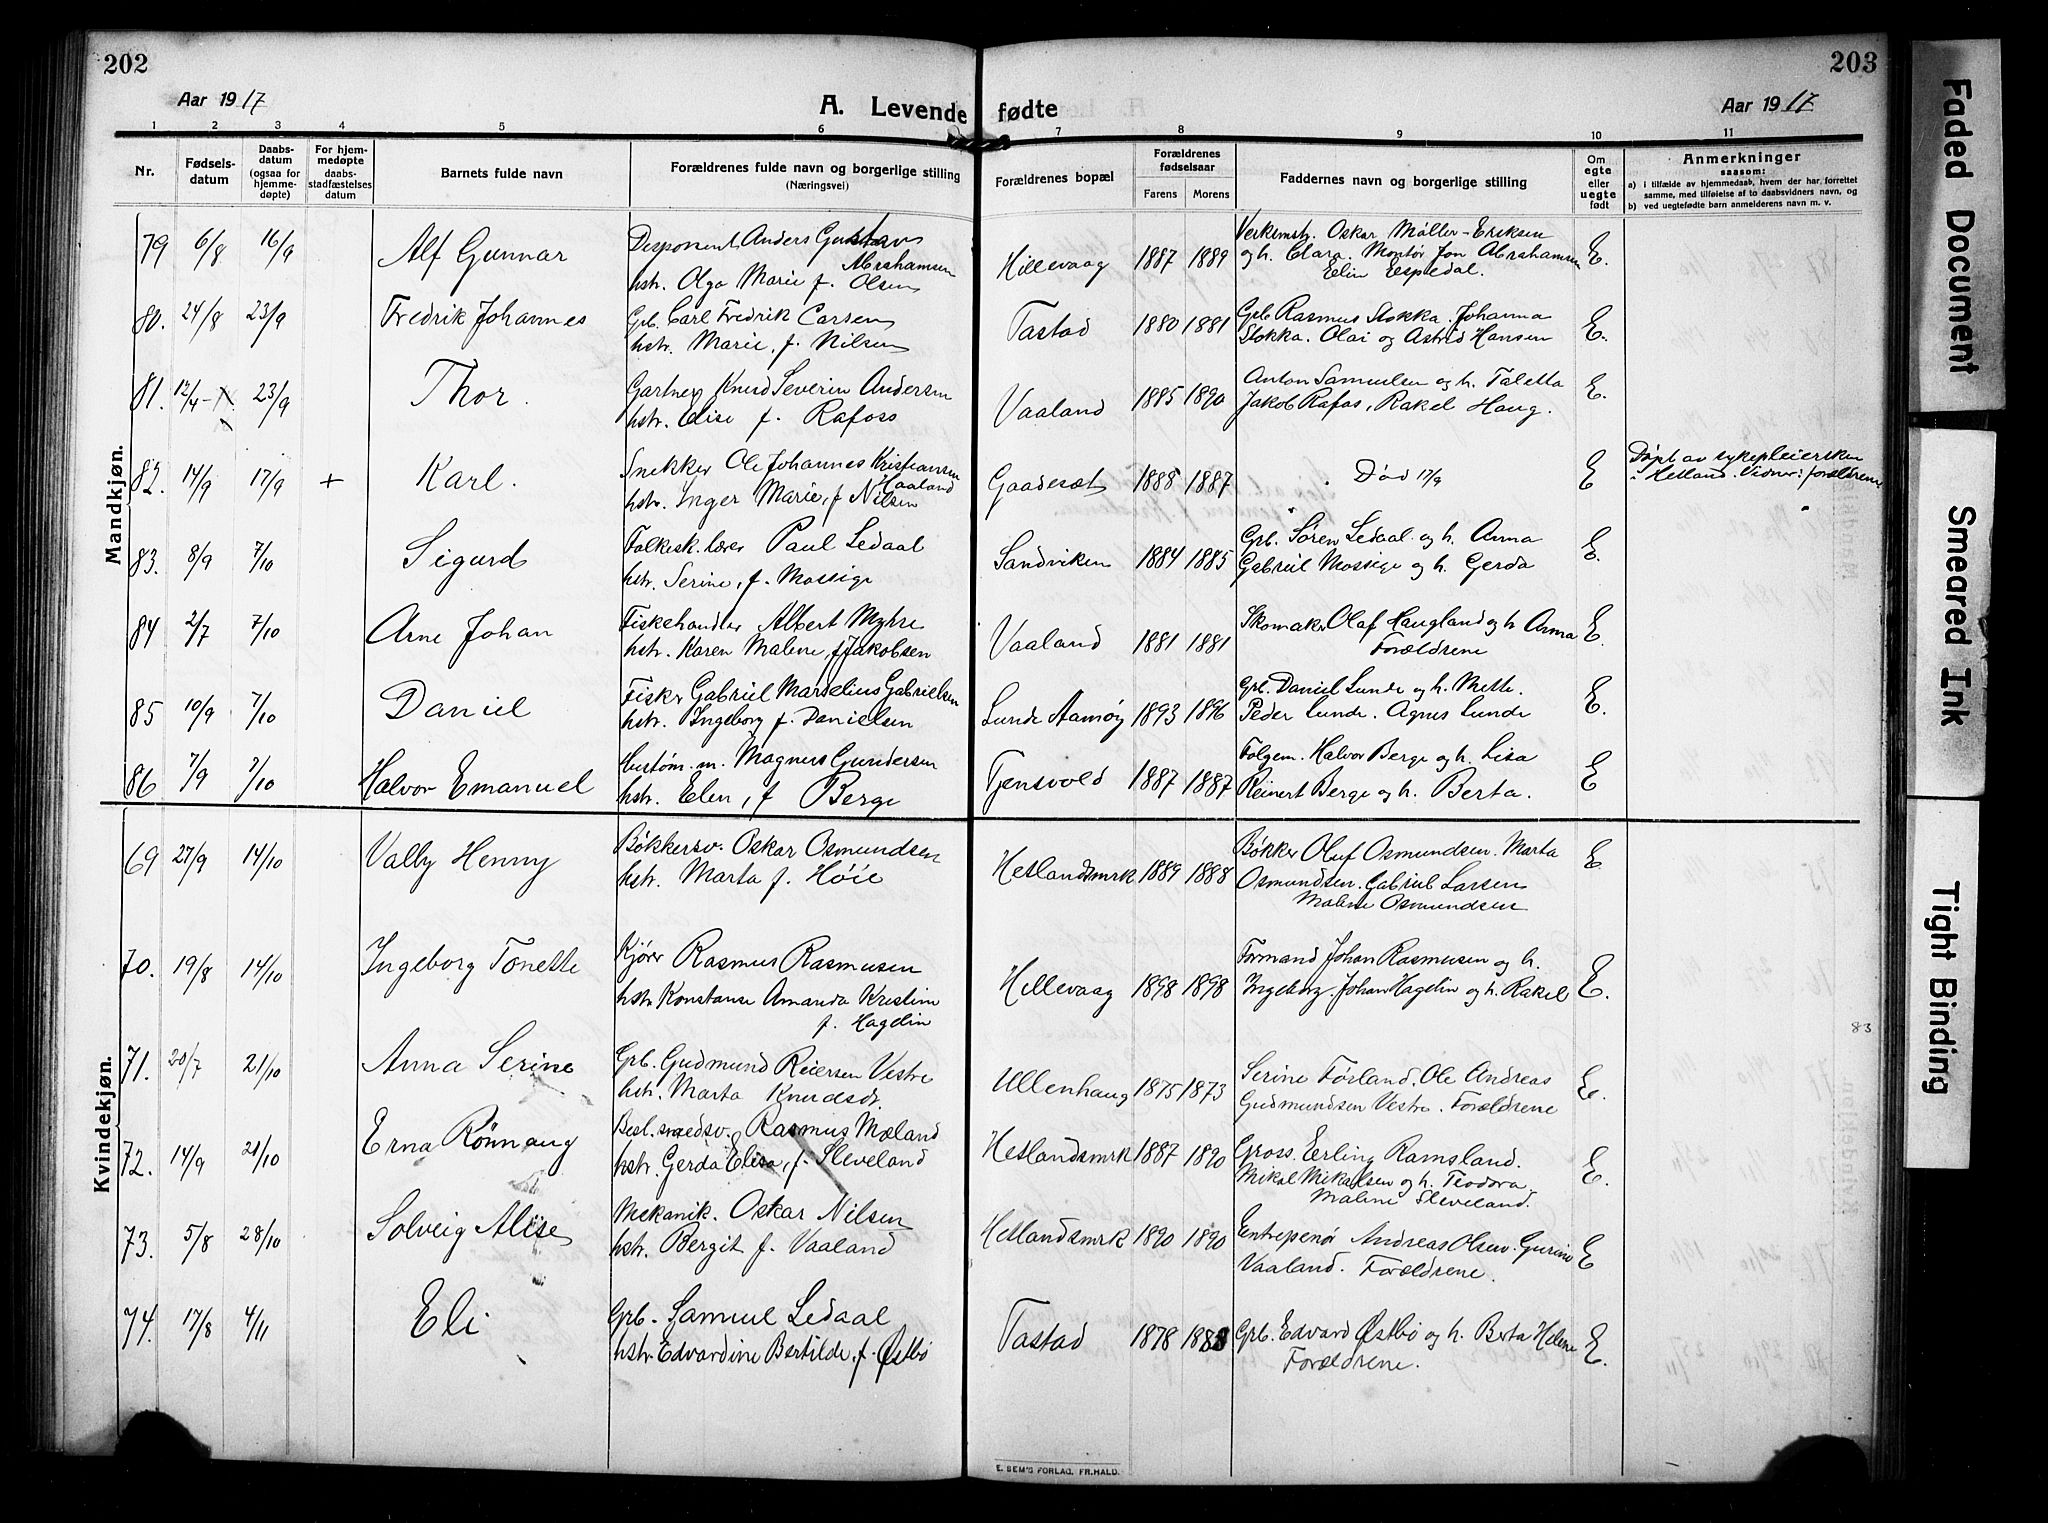 202
203
Aar 1917
A. Levende fødte
Aar 1917
1 2 3 4 5 6 7 8 9 10 11
Nr.
Fødsels-
datum
Daabs-
datum
(ogsaa for
hjemme-
døpte)
For hjem-
medøpte
daabs-
stadfæstelses
datum
Barnets fulde navn
Forældrenes fulde navn og borgerlige stilling
(Næringsvei)
Forældrenes bopæl
Forældrenes
fødselsaar
Farens Morens
Faddernes navn og borgerlige stilling
Om
egte
eller
uegte
født
Anmerkninger
saasom:
a) i tilfælde av hjemmedaab, hvem der har forrettet
samme, med tilføielse af to daabsvidners navn, og
b) ved uegtefødte børn anmelderens navn m. v.
Mandkjøn.
79 6/8 16/9 Alf Gunnar Hillevaag 1887 1889 E.
Disponent Anders Gustav
Abrahamsen
hstr. Olga Marie f. Olsen
Verksmstr. Oskar Møller-Eriksen
og h. Clara. Montør Jon Abrahamsen
Elin Espedal.
80. 24/8 23/9 Fredrik Johannes Tastad 1880 1881 E.
Grb. Carl Fredrik Carsen
hstr. Marie, f. Nilsen
Grb Rasmus Stokka. Johanna
Stokka. Olai og Astrid Hansen
81. 12/4 23/9 Thor. Vaaland 1885 1890 E.
Gartner Knud Severin Andersen
hstr. Elise f. Rafoss
Anton Samuelsen og h. Taletta
Jakob Rafos, Rakel Haug.
82. 14/9 17/9 + Karl. Gaadesæt 1888 1887 Død 17/9 E
Snekker Ole Johannes Kristiansen
Haaland
hstr. Inger Marie, f Nilsen
Døpt av sykepleiersken
i Hetland. Vidner: forældrene
83. 8/9 7/10 Sigurd Sandviken 1884 1885 E.
Folkesk. lærer Paul Ledaal
hstr. Serine, f. Mossige
Grb. Søren Ledaal og h. Anna
Gabriel Mossige og h. Gerda
84 2/7 7/10 Arne Johan Vaaland 1881 1881 E.
Fiskehandler Albert Myhre
hstr. Karen Malene, f Jakobsen
Skomaker Olaf Haugland og h Anna
Forældrene
85 10/9 7/10 Daniel Lunde Aamøy 1893 1896 E.
Fisker Gabriel Marselius Gabrielsen
hstr. Ingeborg f. Danielsen
Grb. Daniel Lunde og h. Mette.
Peder Lunde. Agnes Lunde
86 7/9 7/10 Halvor Emanuel Tjensvold 1887 1887 E
hustøm. m. Magnus Gundersen
hstr. Elen, f Berge
Folgem. Halvor Berge og h. Lisa
Reinert Berge og h. Berta.
Kvindekjøn.
69 27/9 14/10 Valby Henny Hetlandsmrk 1889 1888 E.
Bøkkersv. Oskar Osmundsen
hstr. Marta f. Høie
Bøkker Oluf Osmundsen. Marta
Osmundsen. Gabriel Larsen
Malene Osmundsen
70. 19/8 14/10 Ingeborg Tonette Hillevaag 1898 1898 E.
Kjører Rasmus Rasmusen
hstr. Konstanse Amanda Kristine
f. Hagelin
Formand Johan Rasmusen og h.
Ingeborg. Johan Hagelin og h. Rakel
83
71. 20/7 21/10 Anna Serine Ullenhaug 1875 1873 E.
Grb. Gudmund Reiersen Vestre
hstr. Marta Knudsdr.
Serine Førland. Ole Andreas
Gudmundsen Vestre. Forældrene
72. 14/9 20/10 Erna Rönnaug Hetlandsmrk 1887 1890 E.
Besl. smedsv. Rasmus Mæland
hstr. Gerda Elisa, f. Sleveland
Gross. Erling Ramsland.
Mikal Mikalsen og h. Teodora
Malene Sleveland.
73. 5/8 28/10 Solveig Alise Hetlandsmrk 1890 1890 E
Mekanik. Oskar Nilsen
hstr. Bergit f. Vaaland
Entrepenør Andreas Olsen. Gurine
Vaaland. Forældrene.
74. 17/8 4/11 Eli Tastad 1878 1888 E.
Grb. Samuel Ledaal
hstr. Edvardine Bertilde, f. Østbø
Grb. Edvard Østbø og h. Berta Helene
Forældrene.
E. SEM'S FORLAG, FR.HALD.
Faded Document
Smeared Ink
Tight Binding